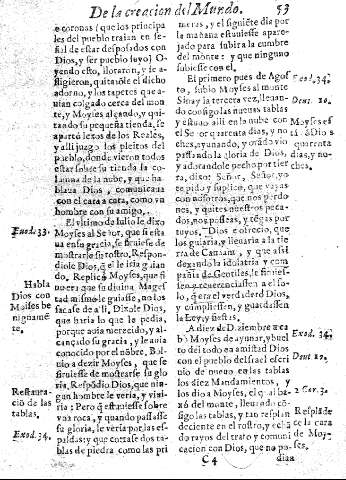 De la creacion del Mundo. 53
coronas (que los principa
les del pueblo traían en se
ñal de estar desposados con
Dios, y ser pueblo suyo) O
yendo esto, lloraron, y se a-
fligieron, quitandose el dicho
adorno, y los tapetes que a
uian colgado cerca del mon
te, y Moyses alçando, y qui
tando su pequeña tienda, se
apartó lexos de los Reales,
y alli juzgo los pleitos del
pueblo, donde vieron todos
estar sobre su tienda la co-
lumna de la nube, y que ha
blaua Dios, comunicaua
con el cara a cara, como vn
hombre con su amigo.
El vltimo de Iulio le dixo
Moyses al Señor, que si esta
ua en su gracia, se siruiese de
mostrarle su rostro, Respon
diole Dios, q̃ el le iria guian
do. Replicò Moyses, que si
no era que su diuina Mages
tad mismo le guiasse, no los
sacase de alli, Dixole Dios,
que haria lo que le pedia,
porque auia merecido, y al-
cançado su gracia, y le auia
conocido por el nõbre, Bol
uio a dezir Moyses, que se
siruiesse de mostrarse su glo
ria, Respõdio Dios, que nin-
gun hombre le veria, y viui-
ria; Pero q̃ estuuiesse sobre
vna roca, y quando passasse
su gloria, le veria por las es-
paldas: y que cortase dos ta-
blas de piedra como las pri
Exod. 33.
Habla
Dios con
Moises be
nignamẽ-
te.
Restaura-
ció de las
tablas.
Exod. 34.
meras, y el siguiẽte dia por
la mañana estuuiesse apare-
jado para subira la cumbre
del monte: y que ninguno
subiesse con el.
El primero pues de Agos
to, subio Moyses al monte
Sinay la tercera vez, lleuan-
do consigo las nueuas tablas
y estuuo alli en la nube con
el Señor quarenta dias, y no
ches, ayunando, y orãdo vio
passando la gloria de Dios,
y adorandole pecho por tier
ra, dixo: Señor, Señor, yo
te pido y suplico, que vayas
con nosotros, que nos perdo-
nes, y quites nuestros peca-
dos, nos posseas, y tẽgas por
tuyos, Dios le ofrecio, que
los guiaria, y lleuaria a la tie
rra de Canaan, y que assi
dexando la idolatria y com
pañia de Gentiles, le siruies-
sen, y reuerenciassen a el so-
lo, q̃ era el verdaderd Dios,
y cumpliessen, y guardassen
la Ley, y fiestas.
A diez de Diziembre aca
bó Moyses de ayunar, y buel
to del todo en amistad Dios
con el pueblo de Israel escri
uio de nueuo en las tablas
los diez Mandamientos, y
los dio a Moyses, el qual ba-
xó del monte, lleuando cõ-
sigo las tablas, y tan resplan
deciente en el rostro, y echã
do rayos del trato y comuni
cacion con Dios, que no po-
C 4 dian
Exod. 34.
Deut. 10.
Moyses es
tá cõ Dios
quarenta
dias, y no-
ches.
Exod. 34.
Deut. 10.
2 Cor. 3.
Resplãde-
ce la cara
de Moy-
ses.